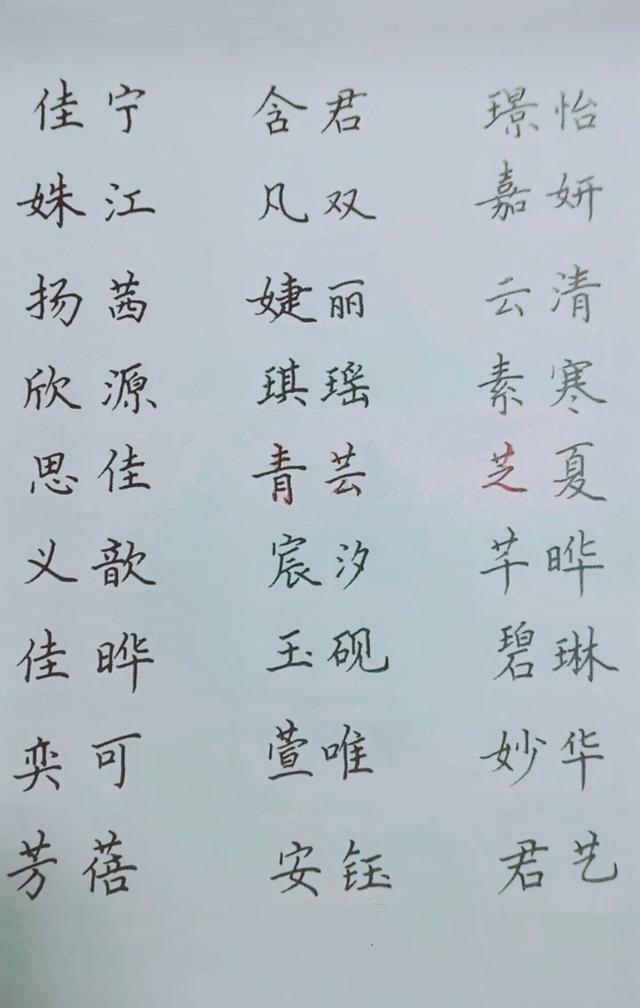 佳宁 含君 璟怡
姝江 凡双 嘉妍
扬茜 婕丽 云清
欣源 琪瑶 素寒
思佳 青芸 芝夏
义歆 宸汐 芊晔
佳晔 玉砚 碧琳
奕可 萱唯 妙华
芳蓓 安钰 君艺